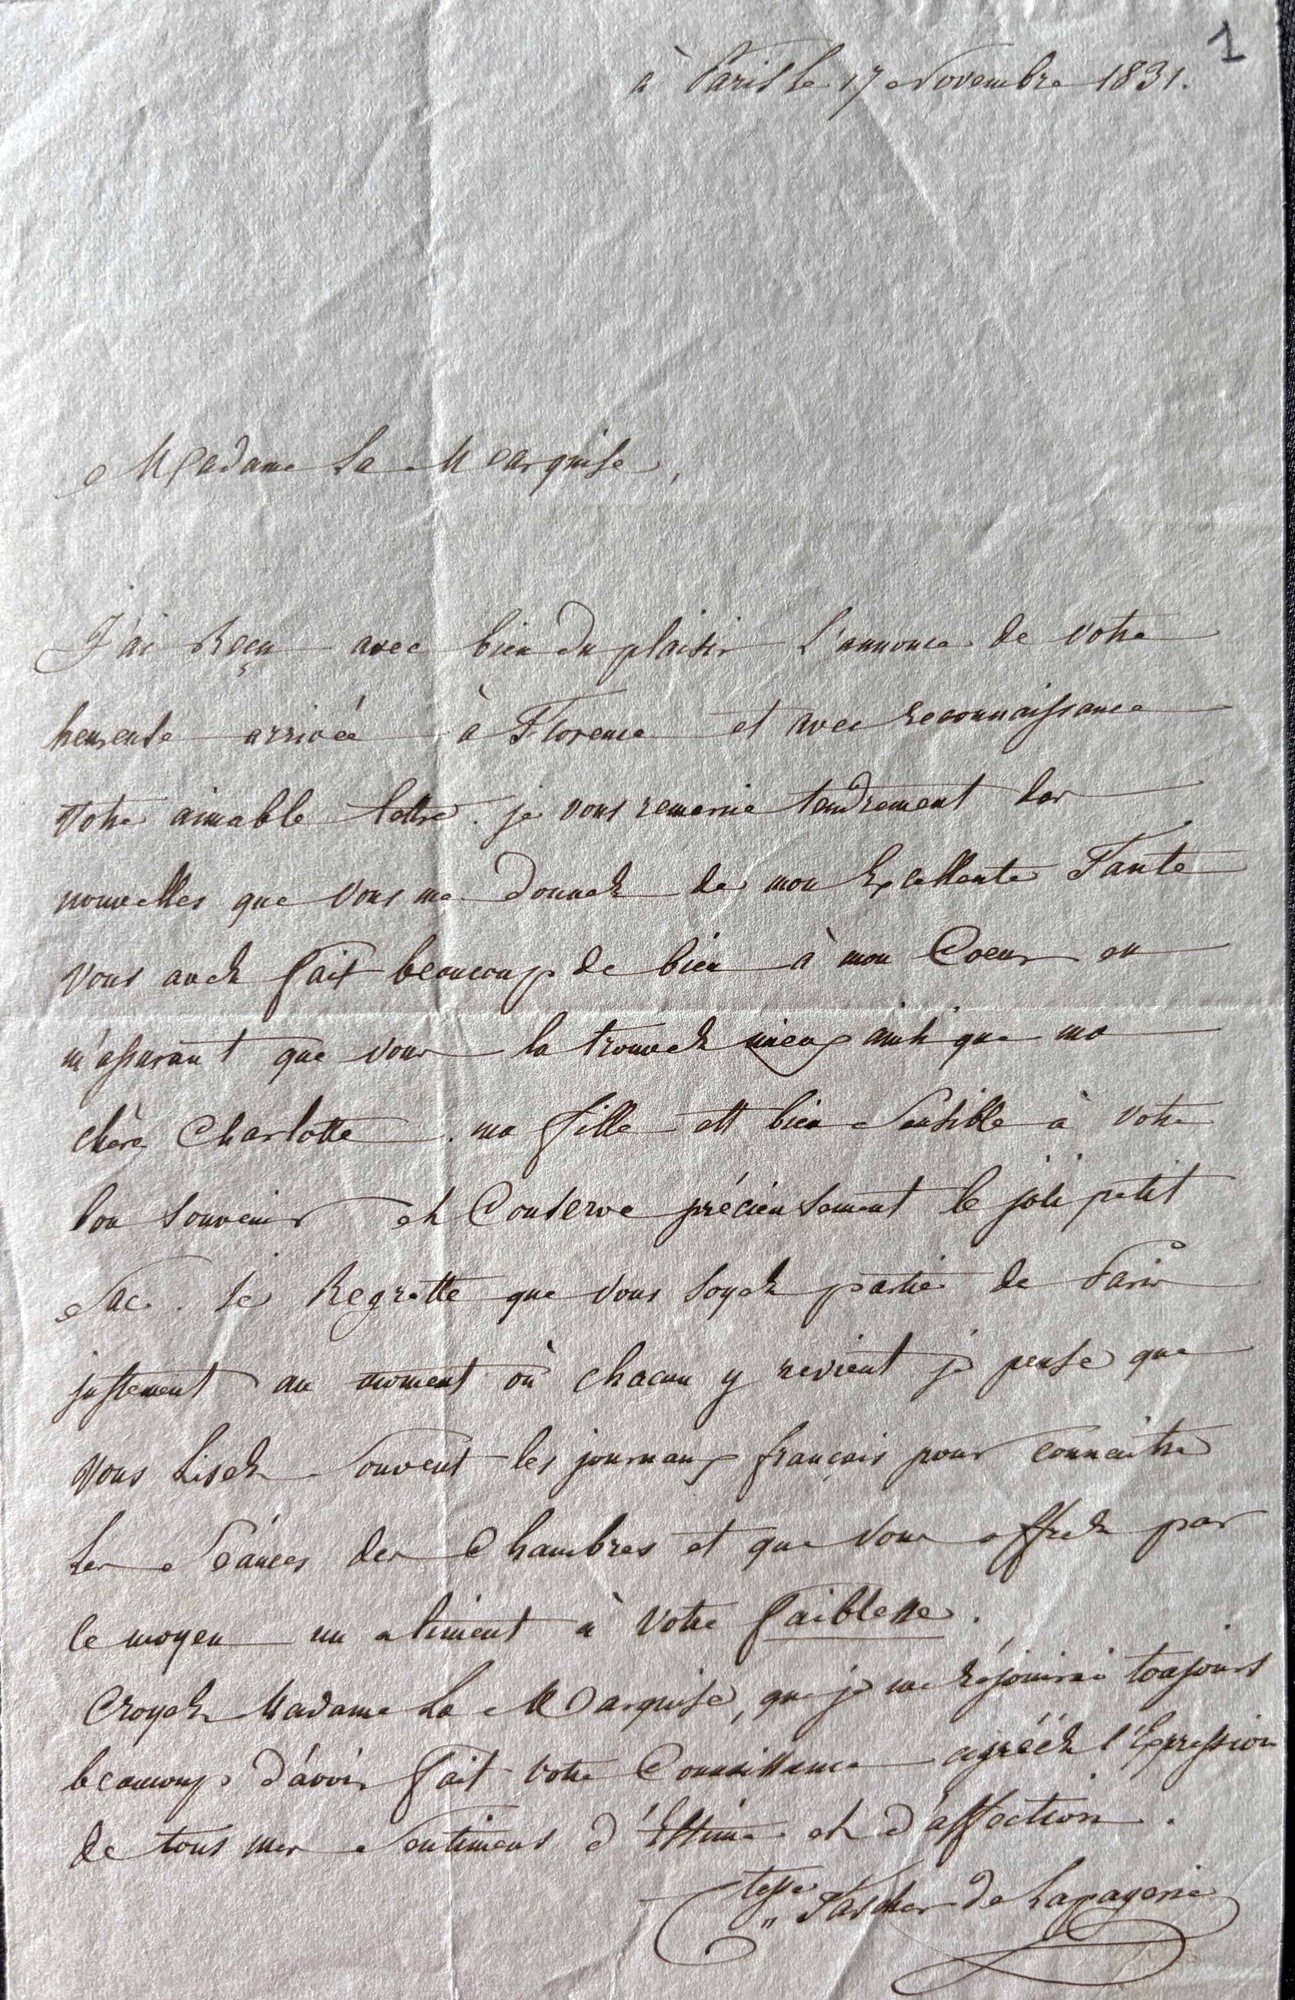 1
à Paris le 17 Novembre 1831.
Madame la Marquise,
J'ai Reçu avec bien du plaisir L'annonce de votre
heureuse arrivée à Florence et avec reconnaissance
votre aimable lettre. je vous remercie tendrement des
nouvelles que vous me donnez de mon Excellente Tante
vous avez fait beaucoup de bien à mon Coeur en
m'assurant que vous la trouvez mieux ainsi que ma
chère Charlotte. ma fille est bien Sensible à votre
bon souvenir et Conserve précieusement le joli petit
Sac. je Regrette que vous soyez partie de Paris
justement au moment où chacun y revient je pense que
vous Lisez Souvent les journaux français pour connaitre
les Séances des Chambres et que vous offrez par
ce moyen un aliment à votre faiblesse.
Croyez Madame La Marquise, que je me réjouirai toujours
beaucoup d'avoir fait votre Connaissance agréez l'Expression
de tous mes Sentimens d'Estime et d'affection.
Ctesse Tascher de Lapagerie